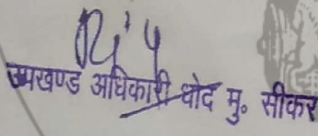 उपखण्ड अधिकारी धोद मु॰ सीकर